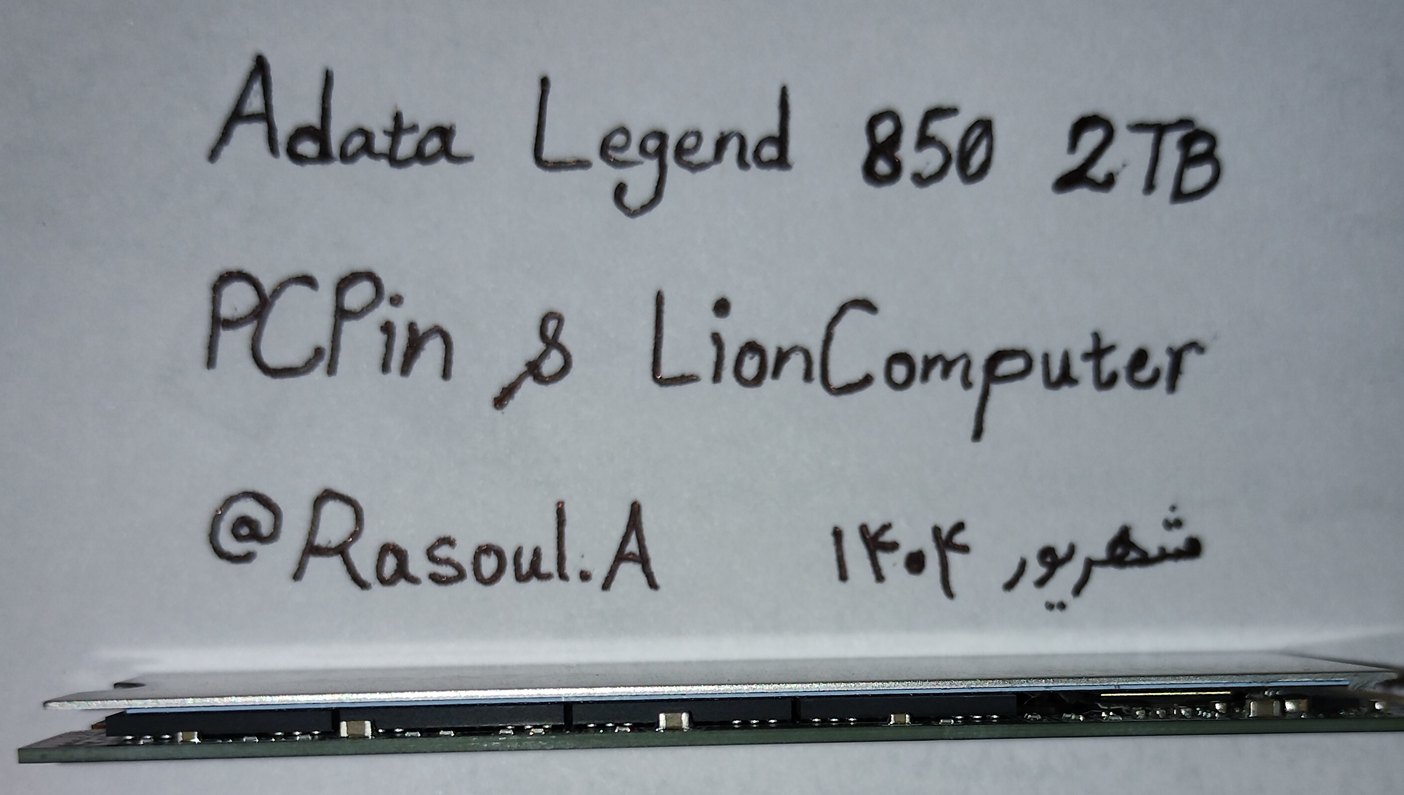 Adata Legend 850 2TB
PCPin & LionComputer
@Rasoul.A شهریور ۱۴۰۴